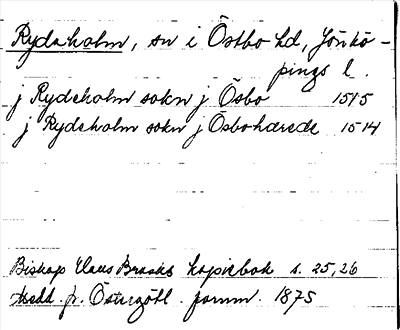 Rydaholm, sn i Östbo hd, Jönkö-
pings l.
j Rydeholm sokn j Ösbo 1515
j Rydeholm sokn j Ösbohærede 1514
Biskop Hans Brasks kopiebok s. 25, 26
Medd. fr. Östergötl. fornm. 1875